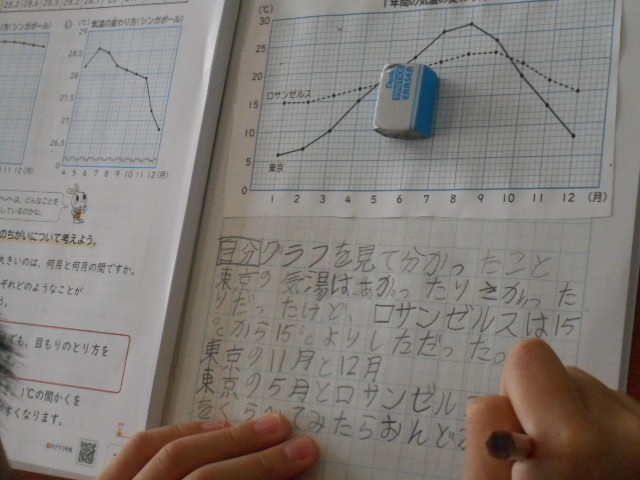 28.2 28.6 28.5 28.2
(シンガポール)
気温の変わり方(シンガポール)
(℃)
29
28.5
28
27.5
27
26.5
0
4 5 6 7 8 9 10 11 12 (月)
12(月)
~~は、どんなことを
しているのかな。
のちがいについて考えよう。
大きいのは、何月と何月の間ですか。
ぞれどのようなことが
ても、目もりのとり方を
、1℃の間かくを
すくなります。
1年間の気温の変わり
(℃)
30
25
20
15
10
5
0
ロサンゼルス
東京
1 2 3 4 5 6 7 8 9 10 11 12 (月)
ERASER
自分 グラフを見て分かったこと
東京の気湯はあがったりさがった
りだったけど、ロサンゼルスは15
℃から15℃よりしただった。
東京の11月と12月
東京の5月とロサンゼル
をくらべてみたらおんど